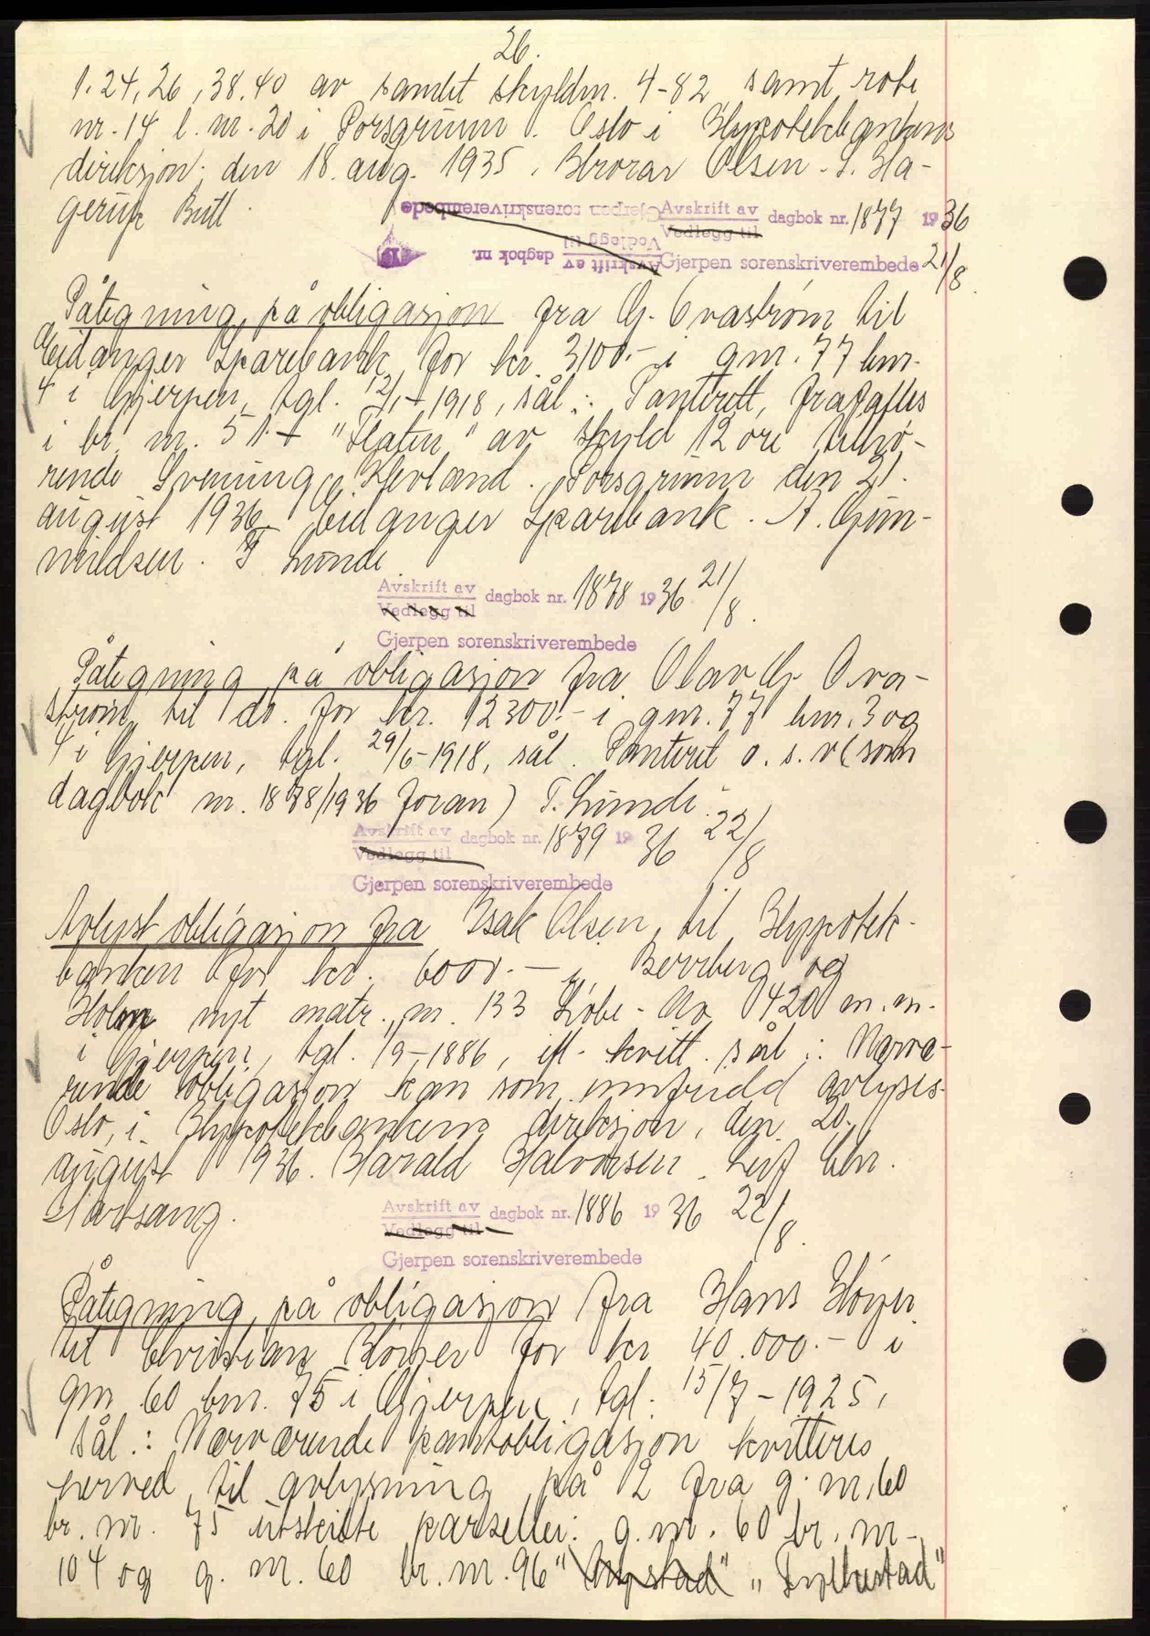 26.
1.24, 26, 38.40 av samlet skyldm. 4-82 samt robe
nr. 14 l. nr. 20 i Porsgrunn. Oslo i Hypotekbankens
direksjon, den 18. aug. 1935. Olsen - S. Ha-
gerup Bull.
Gjerpen sorenskriverembede
Avskrift av
Vedlegg til dagbok nr. 1877 1936
Avskrift av
Vedlegg til dagbok nr.
Gjerpen sorenskriverembede 21/8
Påtegning på obligasjon fra G. Ovastrøm til
Eidanger Sparebank for kr. 3100.- i gnr. 77 bnr.
4 i Gjerpen, tgl. 1918, sål.: Panterett frafalles
i br. nr. 51 "Flaten" av skyld 12 øre tilhø-
rende Svenning Hevland. Porsgrunn den 21.
august 1936. Eidanger Sparebank. A. Gun-
nuldsen. T Lunde
Avskrift av
Vedlegg til dagbok nr. 1878 1936 21/8.
Gjerpen sorenskriverembede
Påtegning på obligasjon fra Olav G. Ova-
strøm til do. for kr. 12300.- i gnr. 77 bnr. 3 og
4 i Gjerpen, tgl. 29/6-1918, sål. Panterett o.s.v (som
dagbok nr. 1878/1936 foran) T. Lunde.
Avskrift av
Vedlegg til dagbok nr. 1879 1936 22/8
Gjerpen sorenskriverembede
Avlyst obligasjon fra Isak Olsen til Hypotek-
banken for kr. 6000.- i Berrberg og
Holm nyt matr. nr. 133 Løbe-No 420 m.m.
i Gjerpen, tgl. 1886, ifl. kvitt. sål.: Nærvæ-
rende obligasjon kan som innfridd avlyses.
Oslo, i Hypotekbankens direksjon, den 20.
august 1936. Harald Halvorsen. Leif Chr.
Hartsang.
Avskrift av
Vedlegg til dagbok nr. 1886 1936 22/8.
Gjerpen sorenskriverembede
Påtegning på obligasjon fra Hans Høyer
til Christian Høyer for kr 40.000.- i
gnr 60 bnr. 75 i Gjerpen, tgl. 15/7-1925,
sål.: Nærværende pantobligasjon kvitteres
herved til avlysning på 2 fra g.nr. 60
br. nr. 75 utskilte parseller: g.nr. 60 br. nr.
104 og g. nr. 60 br. nr. 96 "Fyllustad"